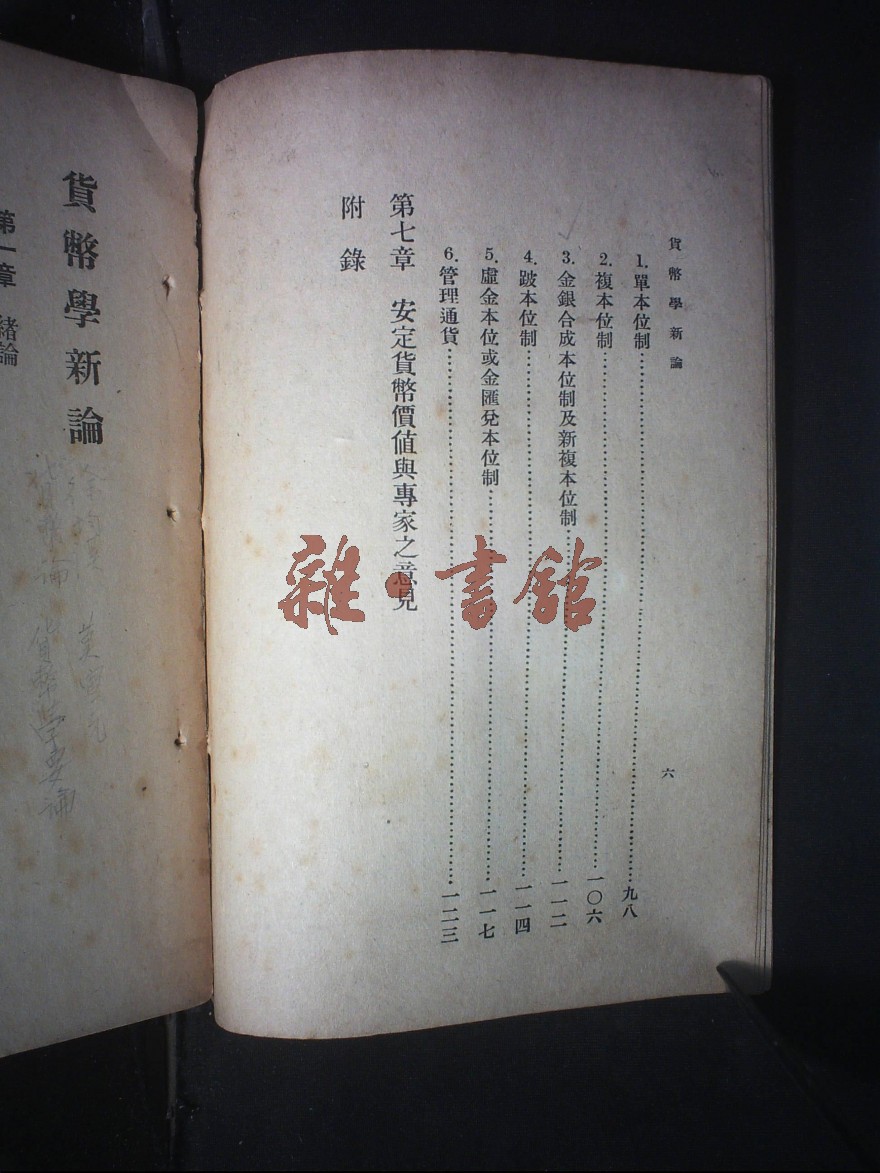 貨幣學新論
六
1. 單本位制……九八
2. 複本位制……一〇六
3. 金銀合成本位制及新複本位制……一一二
4. 跛本位制……一一四
5. 虛金本位或金匯兌本位制……一一七
6. 管理通貨……一二三
第七章 安定貨幣價值與專家之意見
附錄
雜·書館
貨幣學新論
第一章 緒論
貨幣學要論